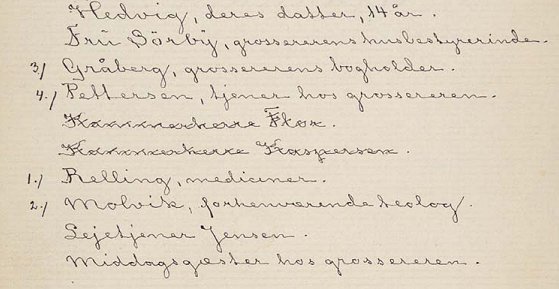 Hedvig, deres datter, 14 år.
Fru Sörby, grossererens husbestyrerinde.
3./ Gråberg, grossererens bogholder.
4./ Pettersen, tjener hos grossereren.
Kammerherre Flor.
Kammerherre Kaspersen.
1./ Relling, mediciner.
2./ Molvik, forhenværende teolog.
Lejetjener Jensen.
Middagsgæster hos grossereren.